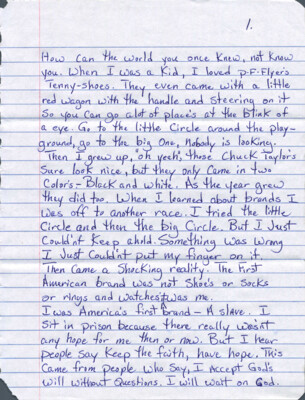 1.
How can the world you once knew, not know
you. When I was a Kid, I loved P-F-Flyers
Tenny-Shoes. They even came with a little
red wagon with the handle and Steering on it
So you can go alot of place's at the Blink of
a eye. Go to the little Circle around the play-
ground, go to the big One, Nobody is looking.
Then I grew up, "oh yeah", those Chuck Taylor's
Sure look nice, but they only Came in two
Color's - Black and white. As the year grew
they did too. When I learned about brands I
was off to another race. I tried the little
Circle and then the big Circle. But I Just
Could'nt Keep ahold. Something was Wrong
I Just Could'nt put my finger on it.
Then Came a Shocking reality. The first
American brand was not Shoe's or Socks
or rings and watches it was me.
I was America's first brand - A Slave. I
Sit in prison because there really wasn't
any hope for me then or now. But I hear
people Say Keep the faith, have hope. This
Came from people who Say, I Accept God's
Will Without Questions. I will wait on God.